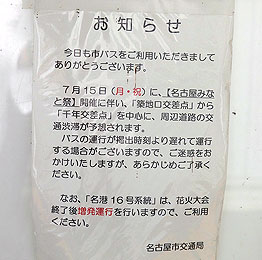 お知らせ
今日も市バスをご利用いただきまして
ありがとうございます。
7月15日(月・祝)に、【名古屋みな
と祭】開催に伴い、「築地口交差点」から
「千年交差点」を中心に、周辺道路の交
通渋滞が予想されます。
バスの運行が掲出時刻より遅れて運行
する場合がございますので、ご迷惑をお
かけいたしますが、あらかじめご了承く
ださい。
なお、「名港16号系統」は、花火大会
終了後増発運行を行いますので、ご利用
ください。
名古屋市交通局